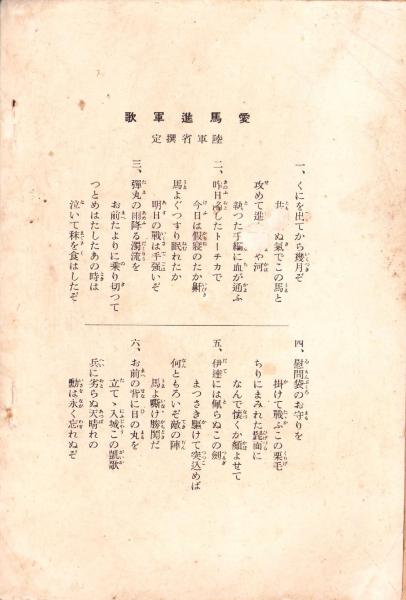 愛馬進軍歌
陸軍省撰定
一、くにを出てから幾月ぞ
共 ぬ氣でこの馬と
攻めて進 や河
執つた手綱に血が通ふ
二、昨日陷したトーチカで
今日は假寢のたか鼾
馬よぐつすり眠れたか
明日の戰は手强いぞ
三、彈丸の雨降る濁流を
お前たよりに乘り切つて
つとめはたしたあの時は
泣いて秣を食はしたぞ
四、慰問袋のお守りを
掛けて戰ふこの栗毛
ちりにまみれた髭面に
なんで懷くか顏よせて
五、伊達には佩らぬこの劍
まつさき驅けて突込めば
何ともろいぞ敵の陣
馬よ嘶け勝鬨だ
六、お前の背に日の丸を
立てゝ入城この凱歌
兵に劣らぬ天晴れの
勳は永く忘れぬぞ